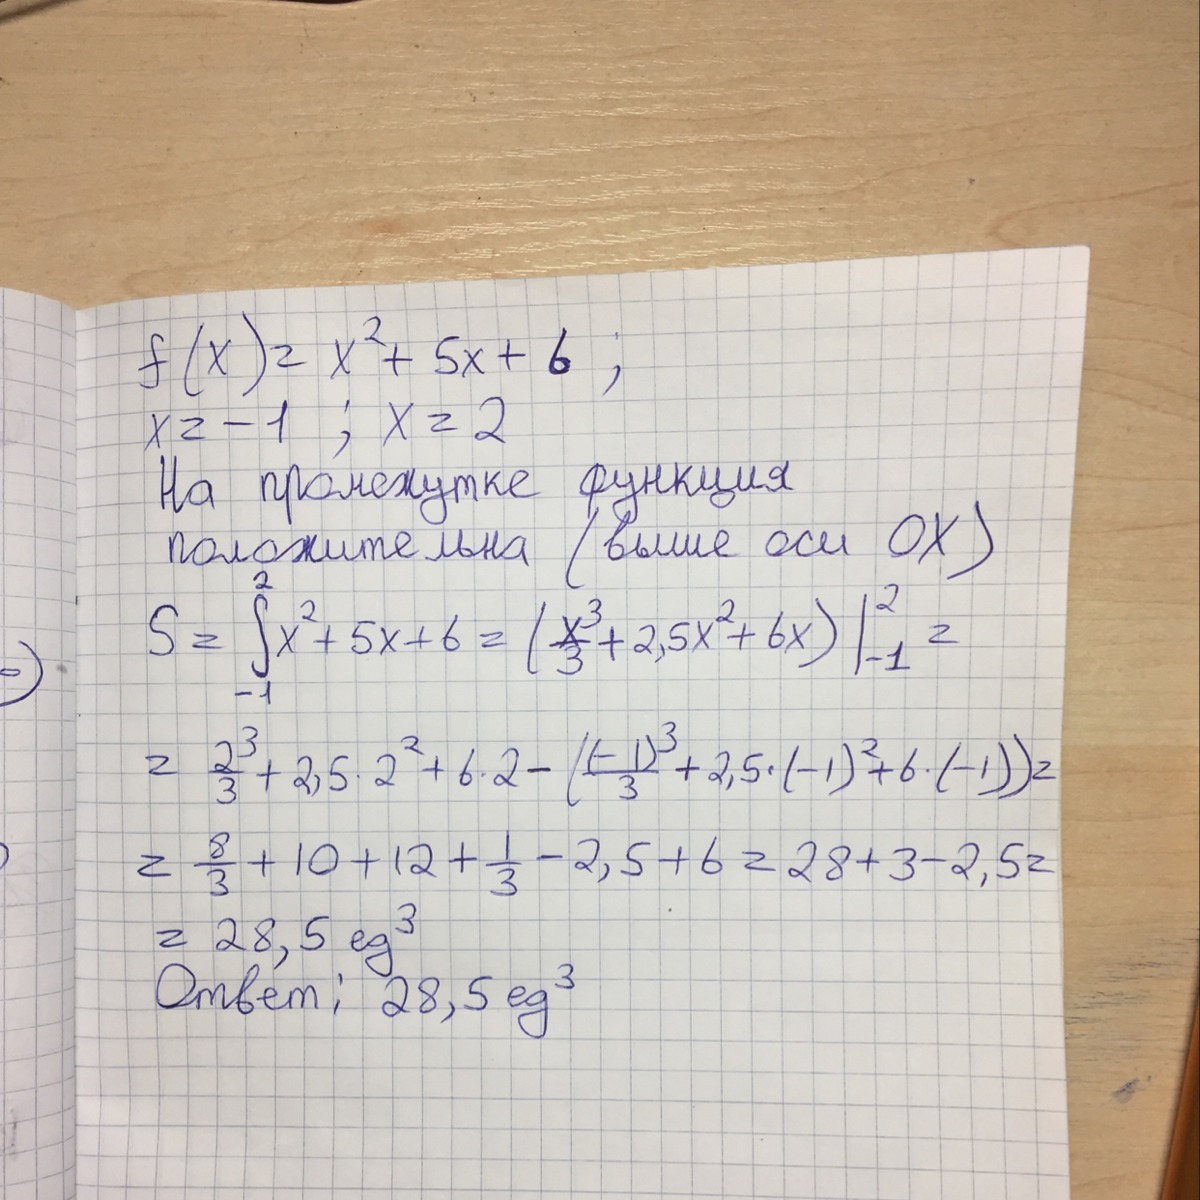 f(x) = x² + 5x + 6 ;
x = -1 ; x = 2
На промежутке функция
положительна (выше оси OX)
S = ∫₋₁² x² + 5x + 6 = (x³/3 + 2,5x² + 6x) |₋₁² =
= 2³/3 + 2,5 · 2² + 6 · 2 - ((-1)³/3 + 2,5 · (-1)² + 6 · (-1)) =
= 8/3 + 10 + 12 + 1/3 - 2,5 + 6 = 28 + 3 - 2,5 =
= 28,5 ед³
Ответ: 28,5 ед³